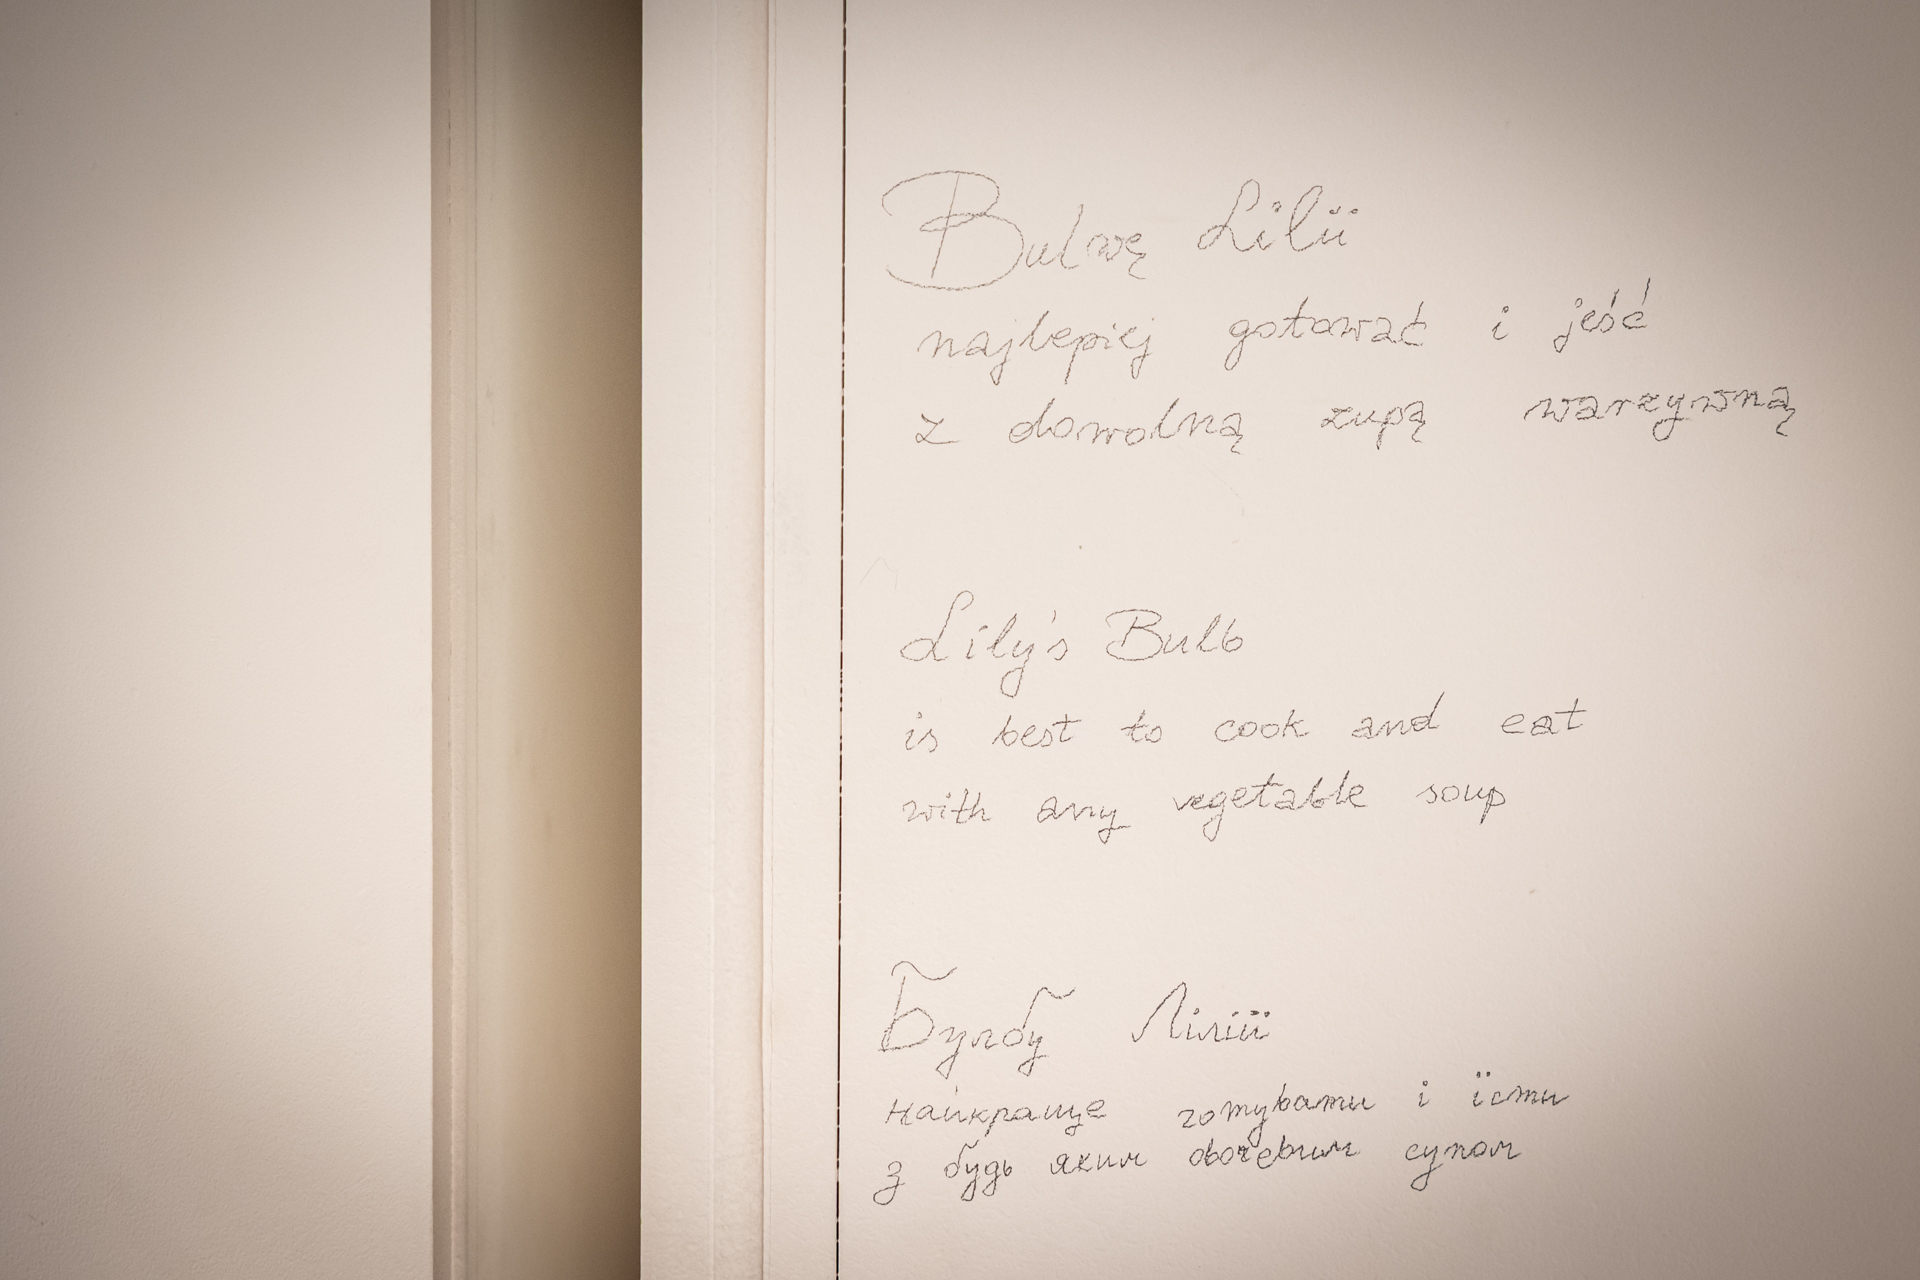 Bulwę Lilii
najlepiej gotować i jeść
z dowolną zupą warzywną
Lily's Bulb
is best to cook and eat
with any vegetable soup
Булбу Лілії
найкраще готувати і їсти
з будь яким овочевим супом